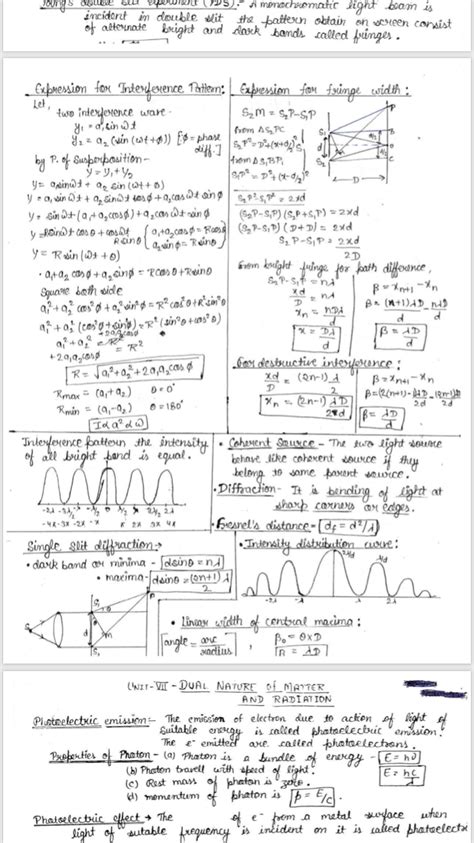 Young's double slit experiment (YDS):- A monochromatic light beam is
incident in double slit the pattern obtain on screen consist
of alternate bright and dark bands called fringes.
Expression for Interference Pattern:
Let,
two interference wave-
y₁ = a₁ sin ωt
y₂ = a₂ (sin (ωt + ϕ)) [ϕ = phase
diff.]
by P. of Superposition -
y = y₁ + y₂
y = a₁ sin ωt + a₂ sin (ωt + θ)
y = a₁ sin ωt + a₂ sin ωt cos ϕ + a₂ cos ωt sin ϕ
y = sin ωt (a₁ + a₂ cos ϕ) + a₂ cos ωt sin ϕ
y = R sin ωt cos θ + cos ωt
R sin θ
{a₁ + a₂ cos ϕ = R cos θ
a₂ sin ϕ = R sin θ}
y = R sin (ωt + θ)
• a₁ + a₂ cos ϕ + a₂ sin ϕ = R cos θ + R sin θ
Square both side
a₁² + a₂² cos² ϕ + a₂² sin² ϕ = R² cos² θ + R² sin² θ
a₁² + a₂² (cos² ϕ + sin² ϕ) = R² (sin² θ + cos² θ)
+ 2a₁a₂ cos ϕ
a₁² + a₂² = R²
+ 2a₁a₂ cos ϕ
R = √a₁² + a₂² + 2a₁a₂ cos ϕ
R max = (a₁ + a₂) θ = 0°
R min = (a₁ - a₂) θ = 180°
I α a² α ω
Expression for fringe width:
S₂M = S₂P - S₁P
from Δ S₂PC
S₂P² = D² + (x + d/2)²
from Δ S₁BP,
S₁P² = D² + (x - d/2)²
S₁
S₂
d
P
B
O
C
D
S₂P² - S₁P² = 2xd
(S₂P - S₁P) (S₂P + S₁P) = 2xd
(S₂P - S₁P) (D + D) = 2xd
S₂P - S₁P = 2xd
2D
From bright fringe for path difference,
S₂P - S₁P = nλ
xd/D = nλ
xₙ = nDλ/d
x = Dλ/d
β = xₙ₊₁ - xₙ
β = (n+1)λD/d - nλD/d
β = λD/d
For destructive interference:
xd/D = (2n-1)λ
xₙ = (2n-1) λD/2d
β = xₙ₊₁ - xₙ
β = λD/d
Interference pattern the intensity
of all bright band is equal.
• Coherent Source - The two light source
behave like coherent source if they
belong to same parent source.
• Diffraction - It is bending of light at
sharp corners or edges.
• Fresnel's distance - (df = d²/λ)
Single Slit diffraction →
• dark band or minima - d sin θ = nλ
• maxima - d sin θ = (2n+1)λ/2
• Intensity distribution curve:
• Linear width of central maxima:
angle = arc/radius
β₀ = θ × D
UNIT-VII - DUAL NATURE OF MATTER
AND RADIATION
Photoelectric emission:- The emission of electron due to action of light of
suitable energy is called photoelectric emission.
The e⁻ emitted are called photoelectrons.
Properties of Photon - (a) Photon is a bundle of energy - E = hυ
(b) Photon travell with speed of light.
E = hc/λ
(c) Rest mass of photon is zero.
(d) momentum of photon is p = E/c.
Photoelectric effect → The of e⁻ from a metal surface when
light of sutable frequency is incident on it is called photoelectri